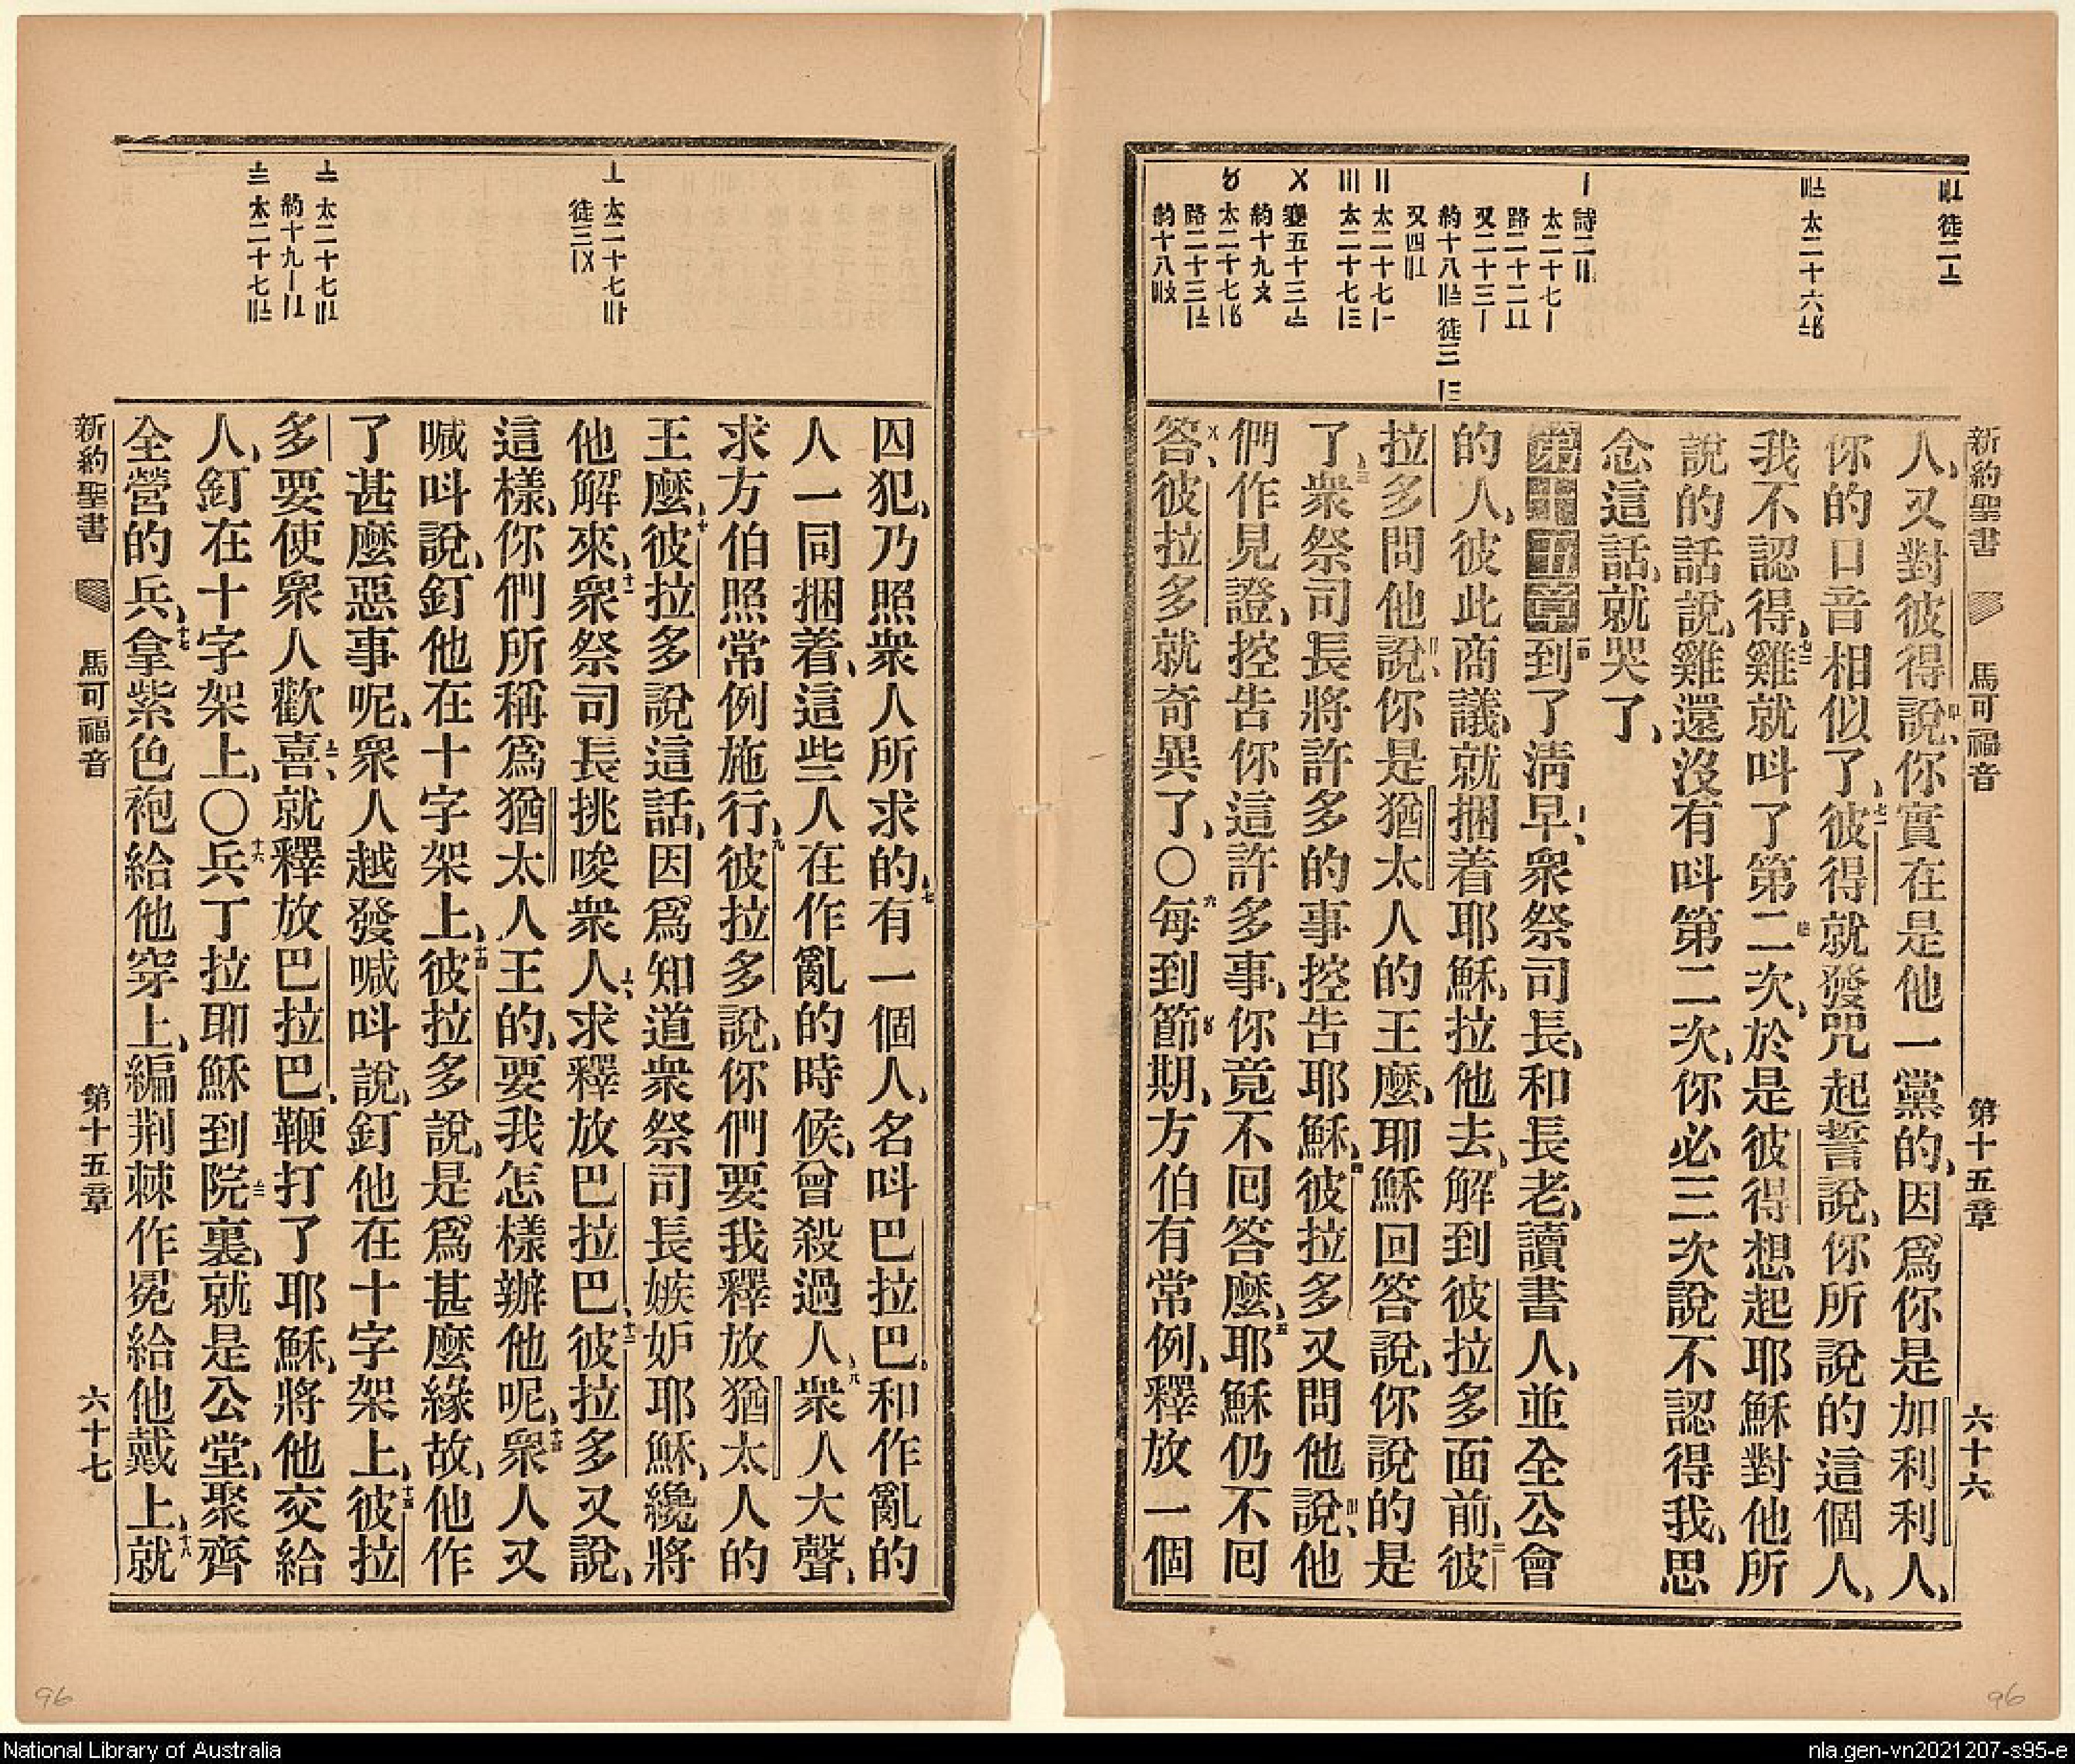 新約聖書 馬可福音 第十五章 六十六
徒二
太二十六
詩二
太二十七
路二十二
又二十三
約十八 徒三
又四
太二十七
太二十七
賽五十三
約十九
太二十七
路二十三
約十八
人、又對彼得說、你實在是他一黨的、因爲你是加利利人、
你的口音相似了、彼得就發咒起誓說、你所說的這個人、
我不認得、雞就呌了第二次、於是彼得想起耶穌對他所
說的話說、雞還沒有呌第二次、你必三次說不認得我、思
念這話、就哭了、
第十五章到了淸早、衆祭司長、和長老、讀書人、並全公會
的人、彼此商議、就捆着耶穌、拉他去、解到彼拉多面前、彼
拉多問他說、你是猶太人的王麼、耶穌回答說、你說的是
了、衆祭司長將許多的事控告耶穌、彼拉多又問他說、他
們作見證、控告你這許多事、你竟不回答麼、耶穌仍不回
答、彼拉多就奇異了、〇每到節期、方伯有常例、釋放一個
太二十七
徒三
太二十七
約十九
太二十七
囚犯、乃照衆人所求的、有一個人、名呌巴拉巴、和作亂的
人一同捆着、這些人在作亂的時候、曾殺過人、衆人大聲、
求方伯照常例施行、彼拉多說、你們要我釋放猶太人的
王麼、彼拉多說這話、因爲知道衆祭司長嫉妒耶穌、纔將
他解來、衆祭司長挑唆衆人、求釋放巴拉巴、彼拉多又說、
這樣、你們所稱爲猶太人王的、要我怎樣辦他呢、衆人又
喊呌說、釘他在十字架上、彼拉多說、是爲甚麼緣故、他作
了甚麼惡事呢、衆人越發喊呌說、釘他在十字架上、彼拉
多要使衆人歡喜、就釋放巴拉巴、鞭打了耶穌、將他交給
人、釘在十字架上、〇兵丁拉耶穌到院裏、就是公堂、聚齊
全營的兵、拿紫色袍給他穿上、編荆棘作冕給他戴上、就
新約聖書 馬可福音 第十五章 六十七
96
96
National Library of Australia
nla.gen-vn2021207-s95-e